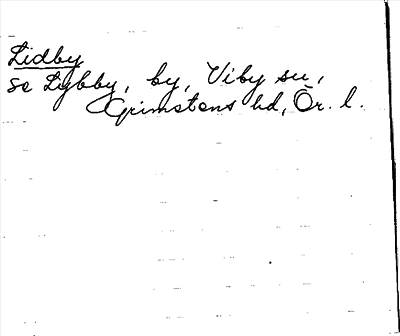 Lidby
se Lybby, by, Viby sn,
Grimstens hd, Ör. l.